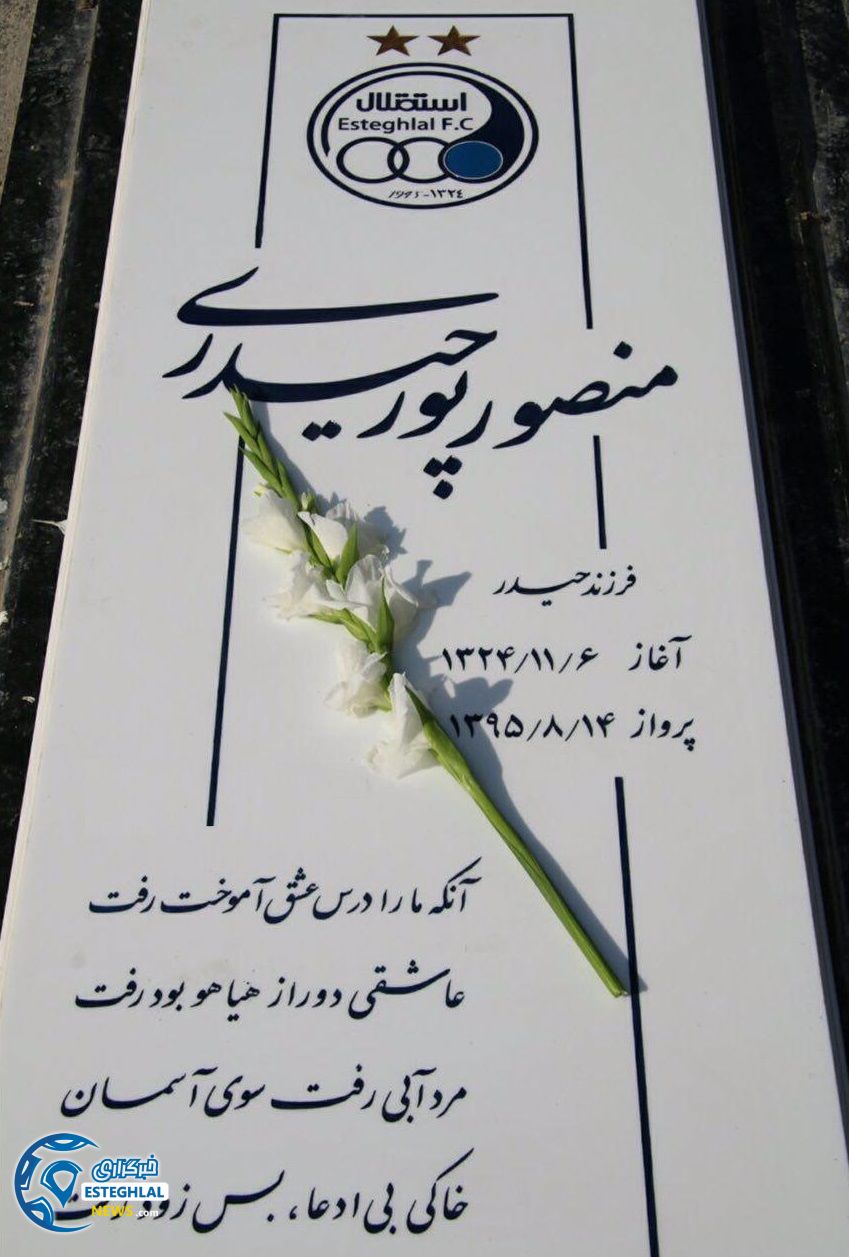 استقلال
Esteghlal F.C
1945-۱۳۲٤
منصور پورحیدری
فرزند حیدر
آغاز ۱۳۲۴/۱۱/۶
پرواز ۱۳۹۵/۸/۱۴
آنکه ما را درس عشق آموخت رفت
عاشقی دور از هیاهو بود رفت
مرد آبی رفت سوی آسمان
خاکی بی ادعا، بس زود
خبرگزاری
ESTEGHLAL
NEWS.com